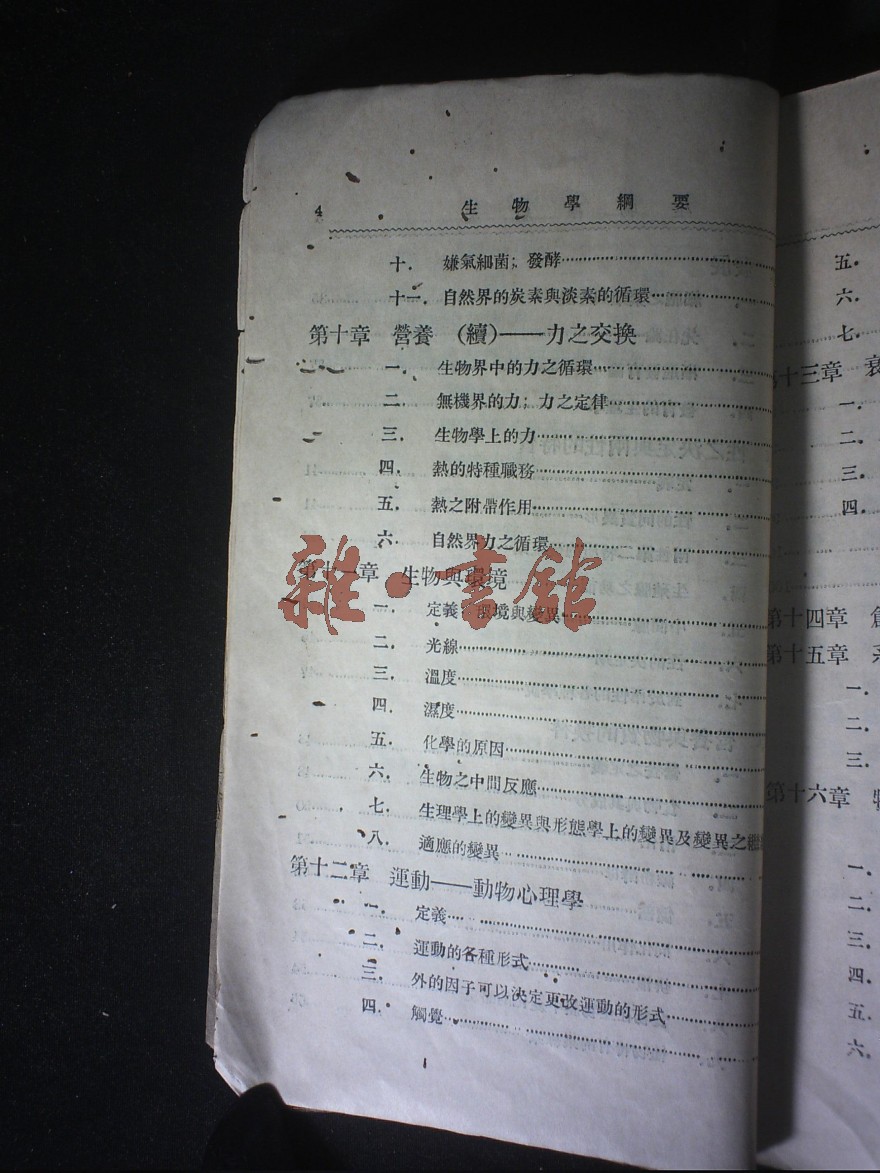 4 生物學綱要
十. 嫌氣細菌; 發酵
十一. 自然界的炭素與淡素的循環
第十章 營養 (續)——力之交換
一. 生物界中的力之循環
二. 無機界的力; 力之定律
三. 生物學上的力
四. 熱的特種職務
五. 熱之附帶作用
六. 自然界力之循環
第十一章 生物與環境
一. 定義 環境與變異
二. 光線
三. 溫度
四. 濕度
五. 化學的原因
六. 生物之中間反應
七. 生理學上的變異與形態學上的變異及變異之
八. 適應的變異
第十二章 運動——動物心理學
一. 定義
二. 運動的各種形式
三. 外的因子可以決定更改運動的形式
四. 觸覺
雜·書館
五.
六.
七.
十三章
一.
二.
三.
四.
第十四章
第十五章
一.
二.
三.
第十六章
一.
二.
三.
四.
五.
六.